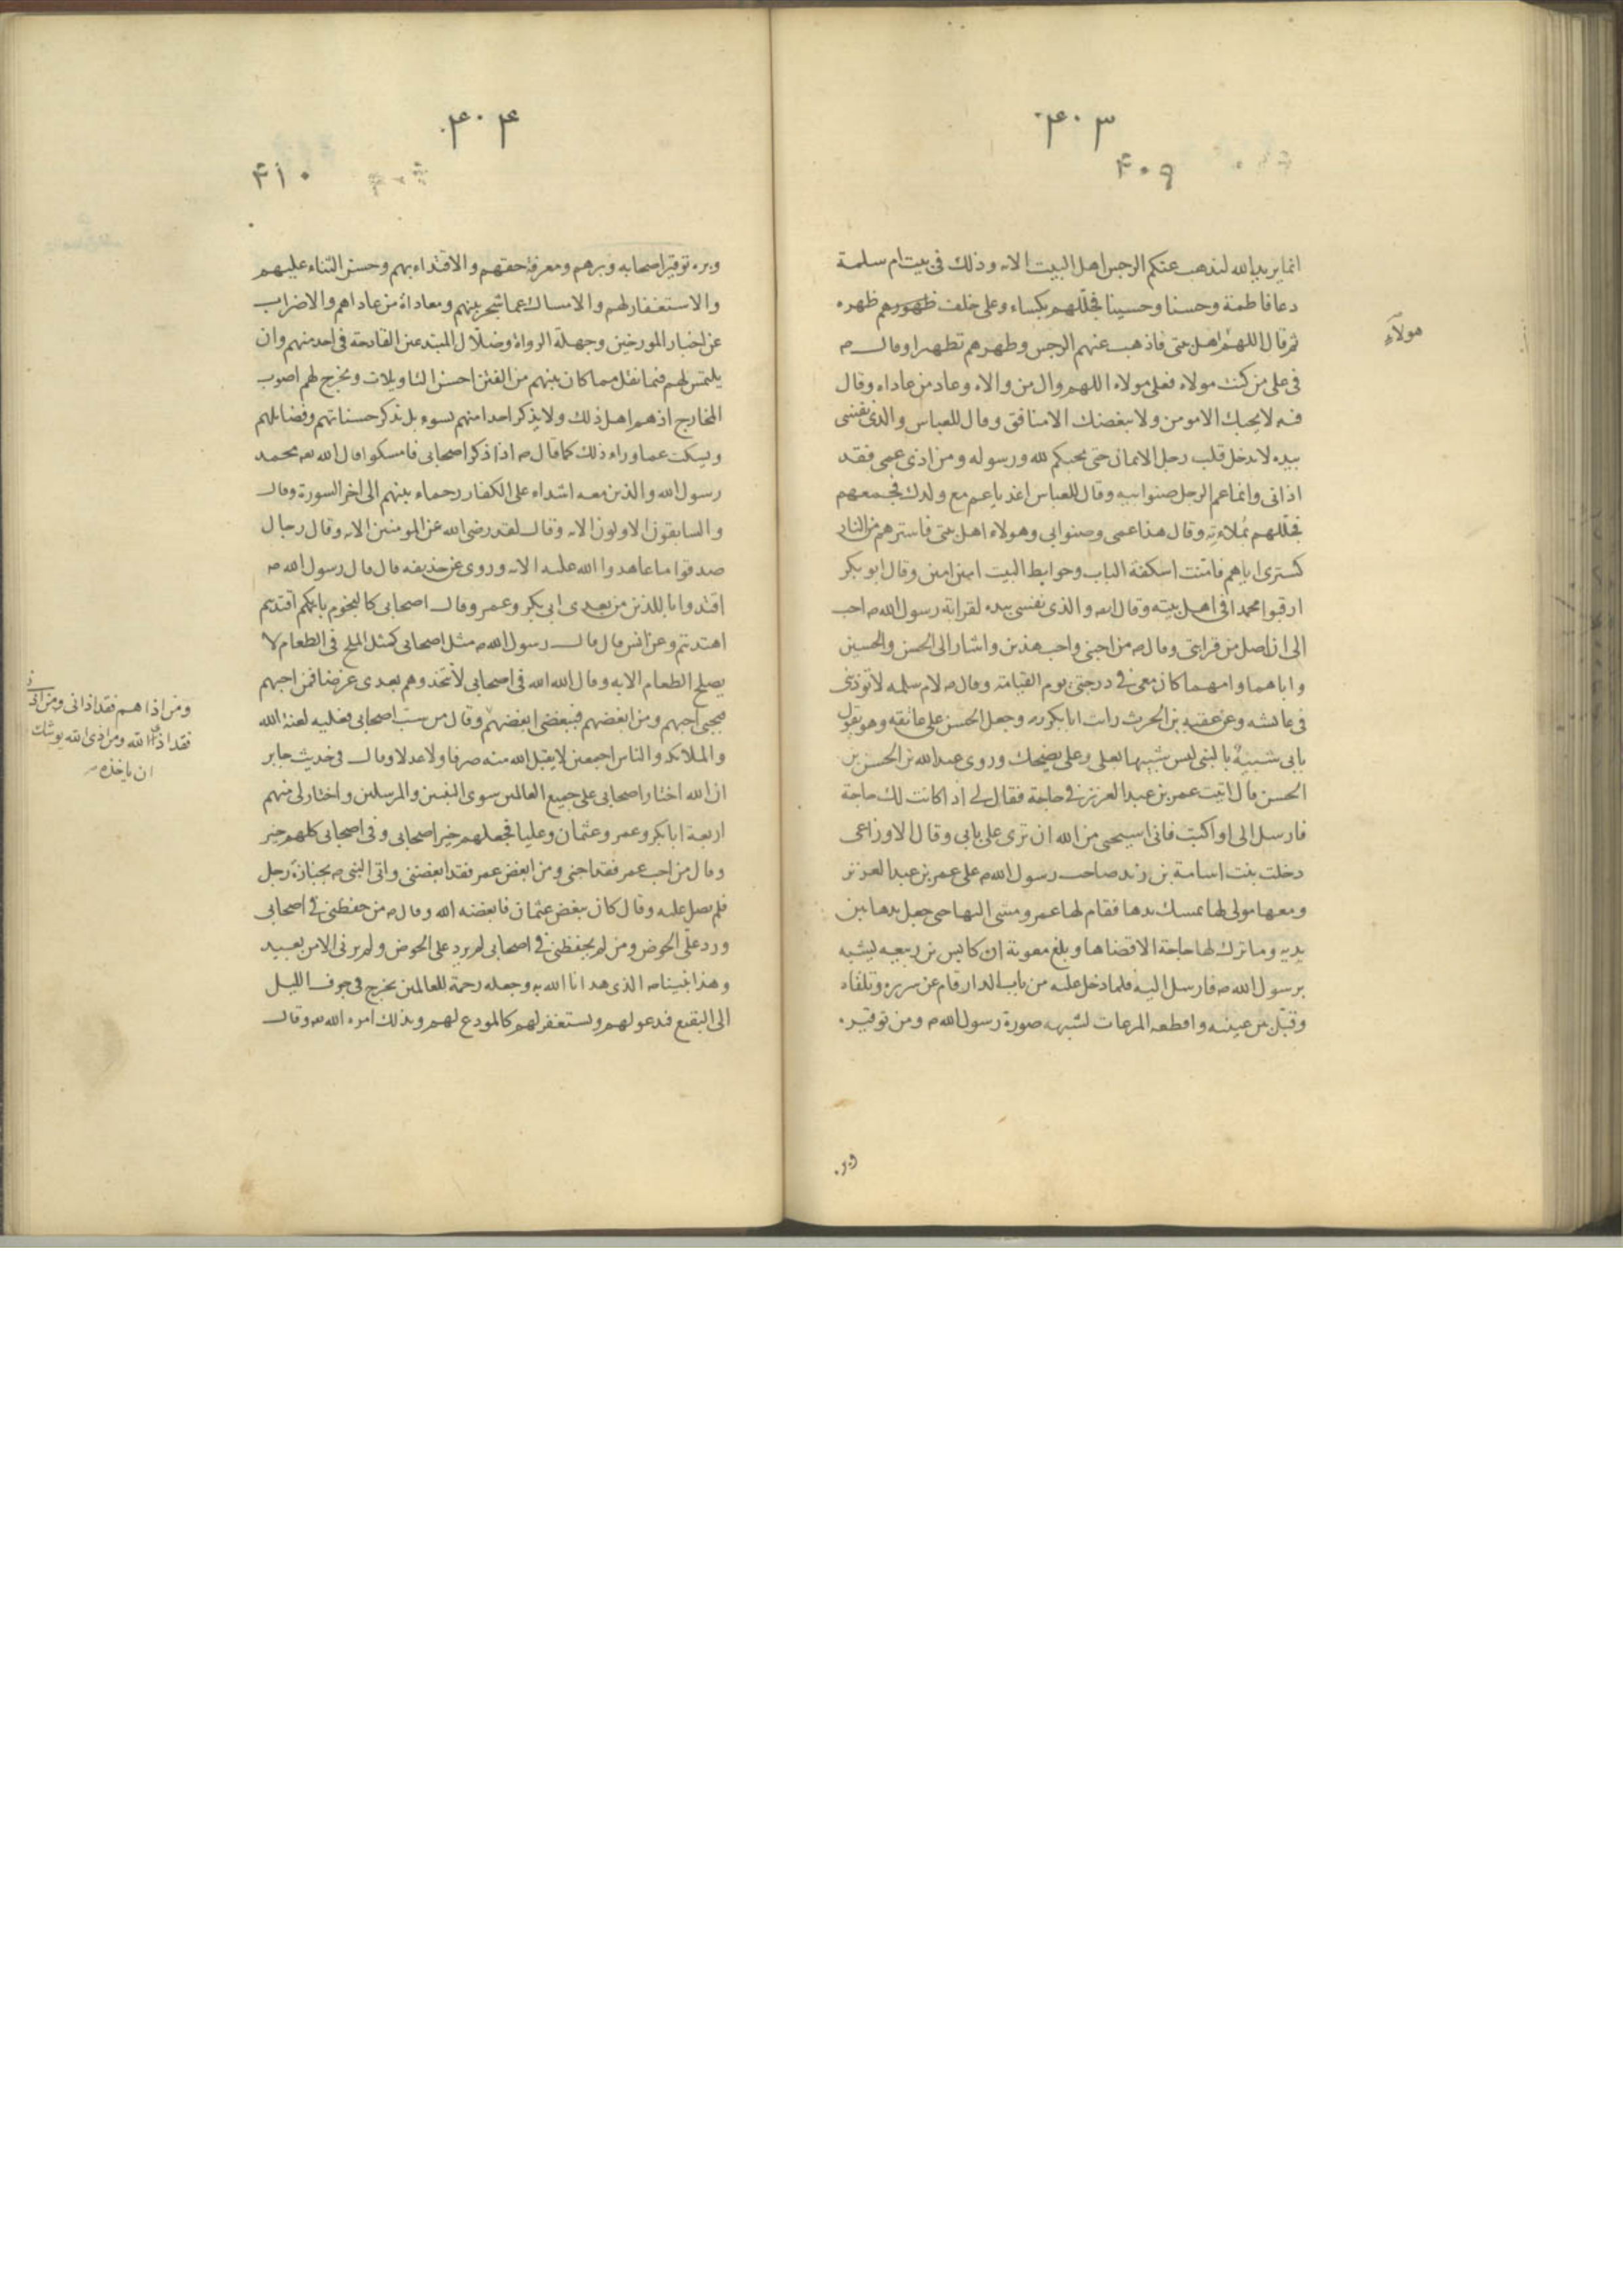 ۴۰۳
۴۰۹
انما يريد الله ليذهب عنكم الرجس اهل البيت الايه وذلك فى بيت ام سلمة
دعا فاطمة وحسنا وحسينا فجللهم بكساء وعلى خلف ظهورهم ظهره
ثم قال اللهم اهل بيتى فاذهب عنهم الرجس وطهرهم تطهيرا وقال صـ
هؤلاء
فى على من كنت مولاه فعلى مولاه اللهم وال من والاه وعاد من عاداه وقال
فيه لا يحبك الا مومن ولا يبغضك الا منافق وقال للعباس والذى نفسى
بيده لا يدخل قلب رجل الايمان حتى يحبكم لله ورسوله ومن اذى عمى فقد
اذانى وانما عم الرجل صنو ابيه وقال للعباس اغد يا عم مع ولدك فجمعهم
فجللهم بملاءته وقال هذا عمى وصنو ابى وهولاء اهل بيتى فاسترهم من النار
كسترى اياهم فامنت اسكفة الباب وحوايط البيت امين امين وقال ابو بكر
ارقبوا محمدا فى اهل بيته وقال ايضا والذى نفسى بيده لقرابة رسول الله صـ احب
الى ان اصل من قرابتى وقال صـ من احبنى واحب هذين واشار الى الحسن والحسين
واباهما وامهما كان معى فى درجتى يوم القيامة وقال صـ لام سلمه لا توذنى
فى عائشه وعن عقبه بن الحرث رايت ابا بكر رضـ وجعل الحسن على عاتقه وهو يقول
بابى شبيه بالنبى ليس شبيها بعلى وعلى يضحك وروى عبد الله بن الحسن بن
الحسن قال اتيت عمر بن عبد العزيز فى حاجة فقال لى اذا كانت لك حاجة
فارسل الى او اكتب فانى استحيى من الله ان ترى على بابى وقال الاوزاعى
دخلت بنت اسامة بن زيد صاحب رسول الله صـ على عمر بن عبد العزيز
ومعها مولى لها يمسك يدها فقام لها عمر ومشى اليها حتى جعل يدها بين
يديه وما ترك لها حاجة الا قضاها وبلغ معوية ان كابس بن ربيعه يشبه
برسول الله صـ فارسل اليه فلما دخل عليه من باب الدار قام عن سريره وتلقاه
وقبل بين عينيه واقطعه المرعاب لشبهه صورة رسول الله صـ ومن توقيره
وبره
۴۰۴
۴۱۰
وبره توقير اصحابه وبرهم ومعرفة حقهم والاقتداء بهم وحسن الثناء عليهم
والاستغفار لهم والامساك عما شجر بينهم ومعاداة من عاداهم والاضراب
عن اخبار المورخين وجهلة الرواة وضلال المبتدعين القادحة فى احد منهم وان
يلتمس لهم فيما نقل مما كان بينهم من الفتن احسن التاويلات ويخرج لهم اصوب
المخارج اذ هم اهل ذلك ولا يذكر احدا منهم بسوء بل تذكر حسناتهم وفضايلهم
ويسكت عما وراء ذلك كما قال صـ اذا ذكر اصحابى فامسكوا قال الله تعـ محمد
رسول الله والذين معه اشداء على الكفار رحماء بينهم الى اخر السورة وقال
والسابقون الاولون الايه وقال لقد رضى الله عن المومنين الايه وقال رجال
صدقوا ما عاهدوا الله عليه الايه وروى عن حذيفه قال قال رسول الله صـ
اقتدوا باللذين من بعدى ابى بكر وعمر وقال اصحابى كالنجوم بايكم اقتديتم
اهتديتم وعن انس قال قال رسول الله صـ مثل اصحابى كمثل الملح فى الطعام لا
يصلح الطعام الا به وقال الله الله فى اصحابى لا تتخذوهم بعدى غرضا فمن احبهم
فبحبى احبهم ومن ابغضهم فببغضى ابغضهم وقال من سب اصحابى فعليه لعنة الله
ومن اذاهم فقد اذانى ومن اذانى
فقد اذى الله ومن اذى الله يوشك
ان ياخذه صـ
والملائكة والناس اجمعين لا يقبل الله منه صرفا ولا عدلا وقال فى حديث جابر
ان الله اختار اصحابى على جميع العالمين سوى النبيين والمرسلين واختار لى منهم
اربعة ابا بكر وعمر وعثمان وعليا فجعلهم خير اصحابى وفى اصحابى كلهم خير
وقال من احب عمر فقد احبنى ومن ابغض عمر فقد ابغضنى واتى النبى صـ بجنازة رجل
فلم يصل عليه وقال كان يبغض عثمان فابغضه الله وقال صـ من حفظنى فى اصحابى
ورد على الحوض ومن لم يحفظنى فى اصحابى لم يرد على الحوض ولم يرنى الا من بعيد
وهذا نبينا صـ الذى هدانا الله به وجعله رحمة للعالمين يخرج فى جوف الليل
الى البقيع فيدعو لهم ويستغفر لهم كالمودع لهم وبذلك امره الله تعـ وقال